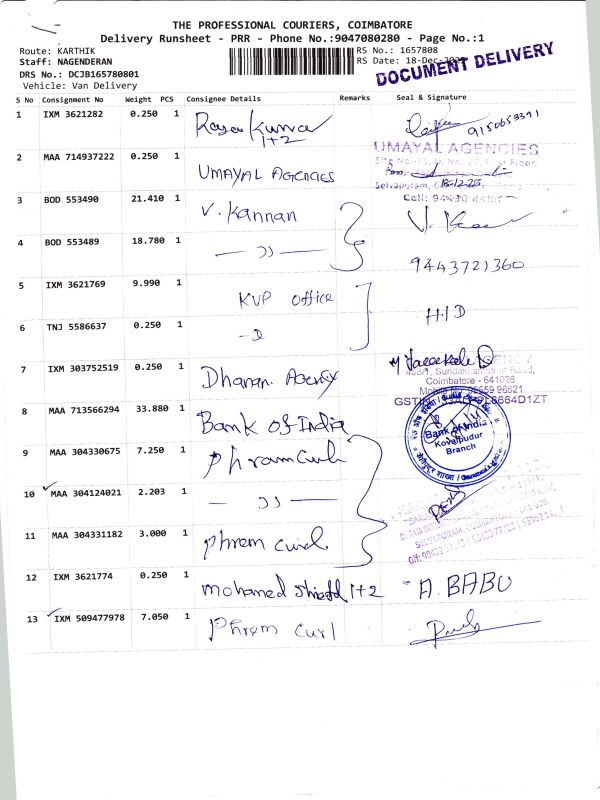 THE PROFESSIONAL COURIERS, COIMBATORE
Delivery Runsheet - PRR - Phone No.:9047080280 - Page No.:1
Route: KARTHIK
RS No.: 1657808
Staff: NAGENDERAN
RS Date: 18-Dec-
DOCUMENT DELIVERY
DRS No.: DCJB165780801
Vehicle: Van Delivery
S No Consignment No Weight PCS Consignee Details Remarks Seal & Signature
1 IXM 3621282 0.250 1 Kumar 1+2 9150653391
2 MAA 714937222 0.250 1 UMAYAL AGENCIES
UMAYAL AGENCIES
Floor,
Selvapuram,
18-12-25
Cell: 94430
3 BOD 553490 21.410 1 V. Kannan
4 BOD 553489 18.780 1 — )) —
9443721360
5 IXM 3621769 9.990 1 KVP office
6 TNJ 5586637 0.250 1 H/D
7 IXM 303752519 0.250 1 Dharan Agency
AGENCY
Sundakkamuthur Road,
Coimbatore - 641026
Mobile No: 98659 96621
8 MAA 713566294 33.880 1 Bank of India
Bank of India
Kovaipudur
Branch
9 MAA 304330675 7.250 1 phramcurl
10 MAA 304124021 2.203 1 — )) —
11 MAA 304331182 3.000 1 phrem curl
12 IXM 3621774 0.250 1 mohamed 1+2 A. BABU
13 IXM 509477978 7.050 1 phrem curl